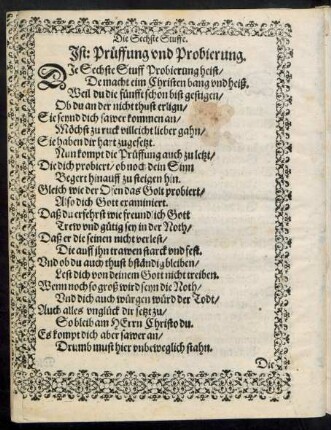 Die Sechste Stuffe.
Ist: Prüffung vnd Probierung.
DIe Sechste Stuff Probierung heist/
De macht eim Christen bang vnd heiß.
Weil du die fünfft schon bist gestigen/
Ob du an der nicht thust erlign/
Sie seynd dich sawer kommen an/
Möchst zu ruck villeicht lieber gahn/
Sie haben dir hart zugesetzt.
Nun kompt die Prüffung auch zu letzt/
Die dich probiert/ ob noch dein Sinn
Begert hinauff zu steigen hin.
Gleich wie der Ofen das Golt probiert/
Also dich Gott examiniert.
Daß du erfehrst wie freundlich Gott
Trew vnd gütig sey in der Noth/
Daß er die seinen nicht verlest/
Die auff ihn trawen starck vnd fest.
Vnd ob du auch thust bständig bleiben/
Lest dich von deinem Gott nicht treiben.
Wenn noch so groß wird seyn die Noth/
Vnd dich auch würgen würd der Todt/
Auch alles vnglück dir setzt zu/
So bleib am HErrn Christo du.
Es kompt dich aber sawer an/
Drumb must hier vnbeweglich stahn.
Die